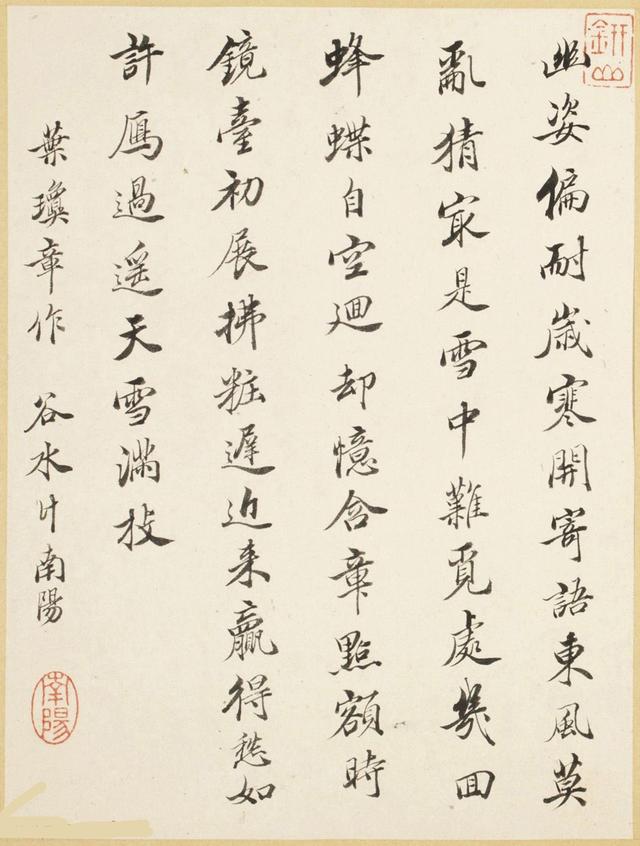 幽姿偏耐歲寒開寄語東風莫
亂猜㝡是雪中難覓處幾囬
蜂蝶自空迴却憶含章點額時
鏡臺初展拂粧遲近来贏得愁如
許鴈過遥天雪滿枝
葉瓊章作 谷水叶南陽
南陽